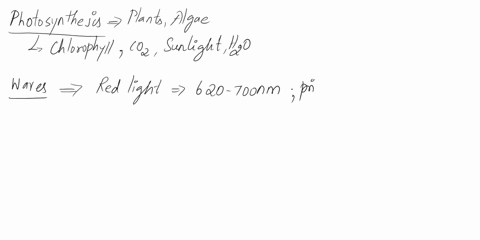 Photosynthesis ⇒ Plants, Algae
↳ Chlorophyll, CO2, Sunlight, H2O
Waves ⇒ Red light ⇒ 620-700nm ;